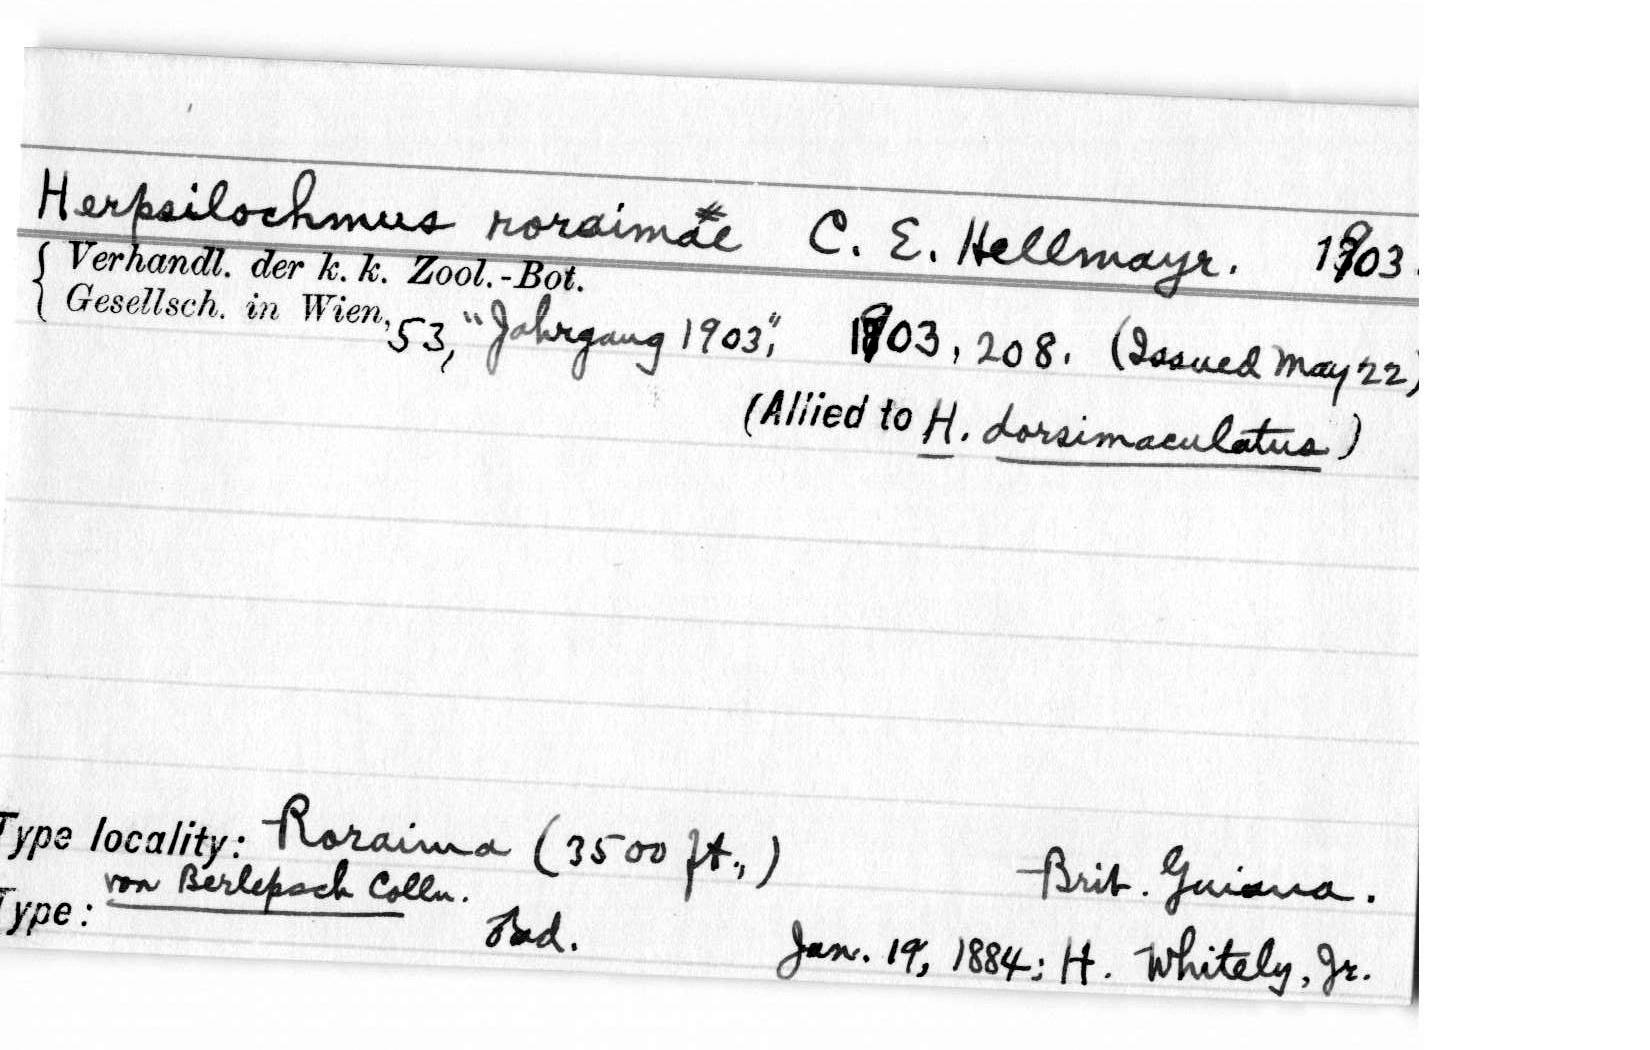 Herpsilochmus roraimae C. E. Hellmayr. 1903.
Verhandl. der k. k. Zool.-Bot.
Gesellsch. in Wien, 53, "Jahrgang 1903", 1903, 208. (Issued May 22)
(Allied to H. dorsimaculatus)
Type locality: Roraima (3500 ft.,) Brit. Guiana.
von Berlepsch Colln.
Type: Ad. Jan. 19, 1884; H. Whitely, Jr.